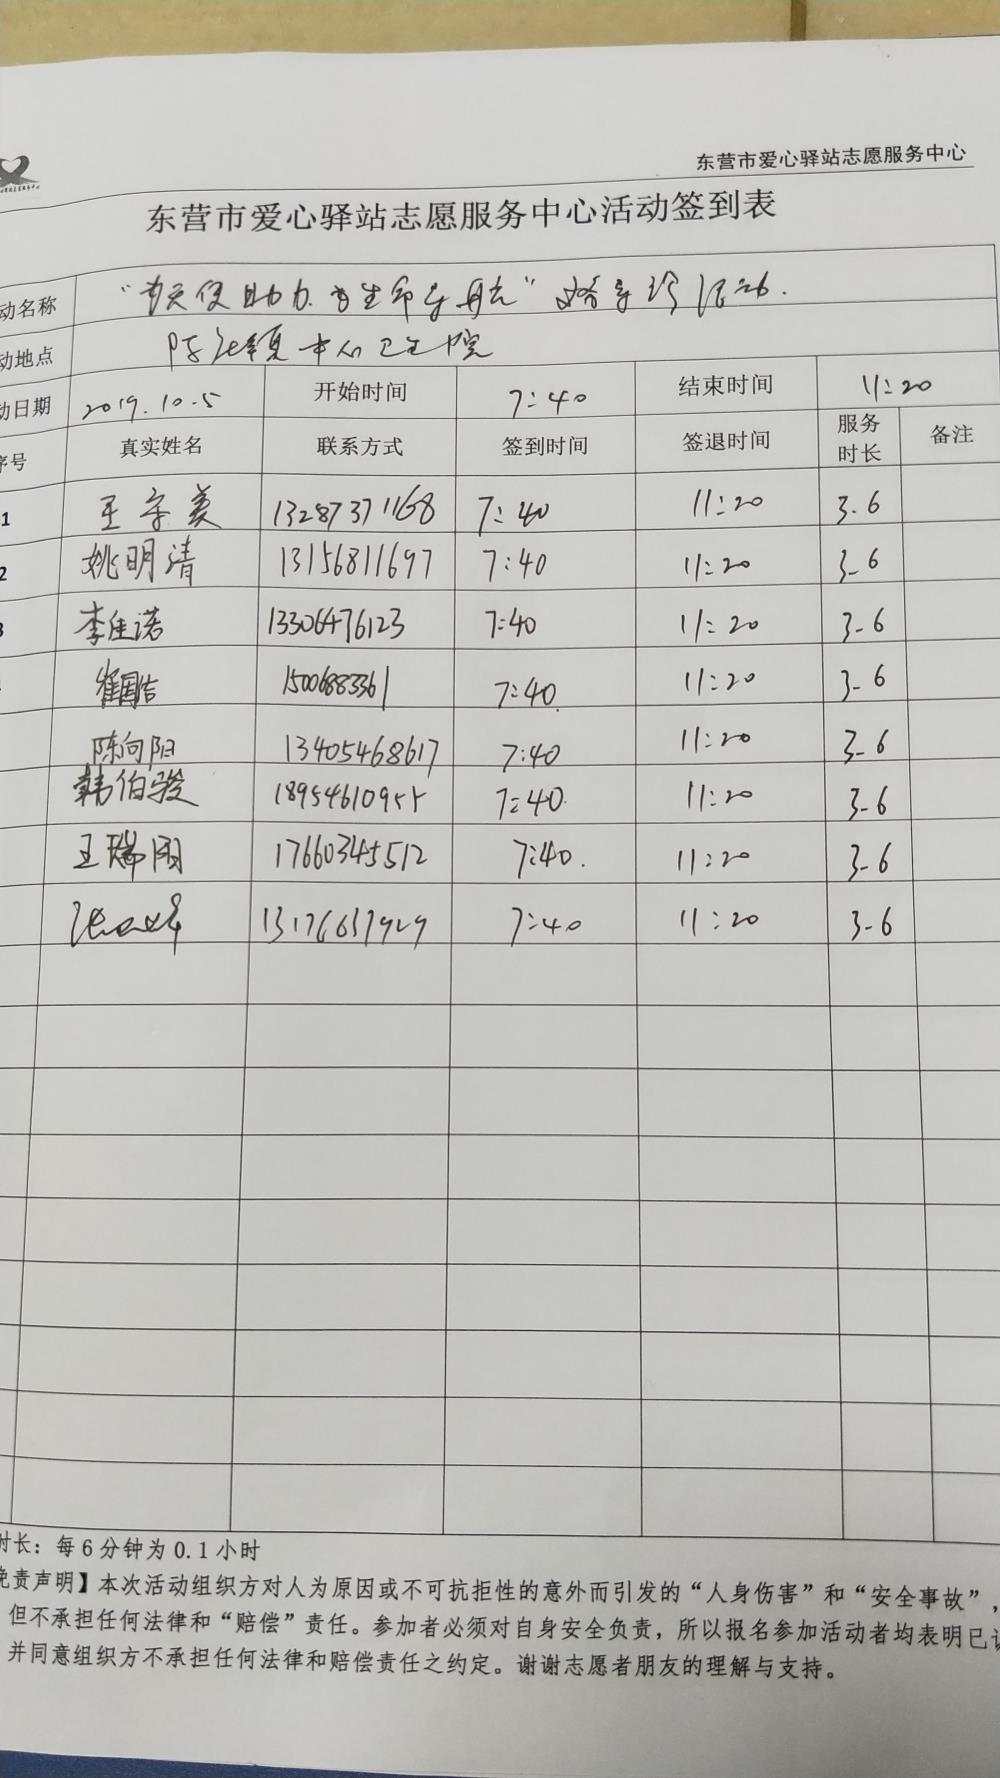 东营市爱心驿站志愿服务中心
东营市爱心驿站志愿服务中心活动签到表
动名称 助力 生命 导航” 导诊活动.
动地点 中心卫生院
动日期 2019.10.5 开始时间 7:40 结束时间 11:20
序号 真实姓名 联系方式 签到时间 签退时间 服务时长 备注
1 王字美 13287371168 7:40 11:20 3.6
2 姚明清 13156811697 7:40 11:20 3.6
3 李佳诺 13306476123 7:40 11:20 3.6
崔国洁 15006883361 7:40 11:20 3.6
陈向阳 13405468617 7:40 11:20 3.6
韩伯骏 18954610955 7:40 11:20 3.6
王瑞 17660345512 7:40 11:20 3.6
7:40 11:20 3.6
时长：每6分钟为0.1小时
免责声明】本次活动组织方对人为原因或不可抗拒性的意外而引发的“人身伤害”和“安全事故”，
但不承担任何法律和“赔偿”责任。参加者必须对自身安全负责，所以报名参加活动者均表明已
并同意组织方不承担任何法律和赔偿责任之约定。谢谢志愿者朋友的理解与支持。